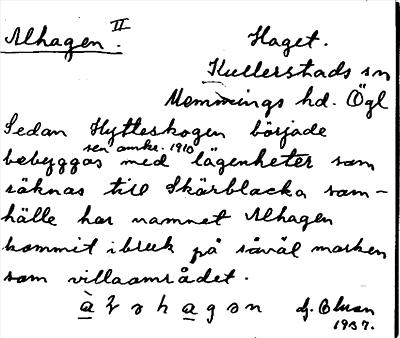 Alhagen. II
Haget.
Kullerstads sn
Memmings hd. Ögl
Sedan Hytteskogen började
sen omkr. 1910
bebyggas med lägenheter som
räknas till Skärblacka sam-
hälle har namnet Alhagen
kommit i bruk på såväl marken
som villaområdet.
hagen
1937.